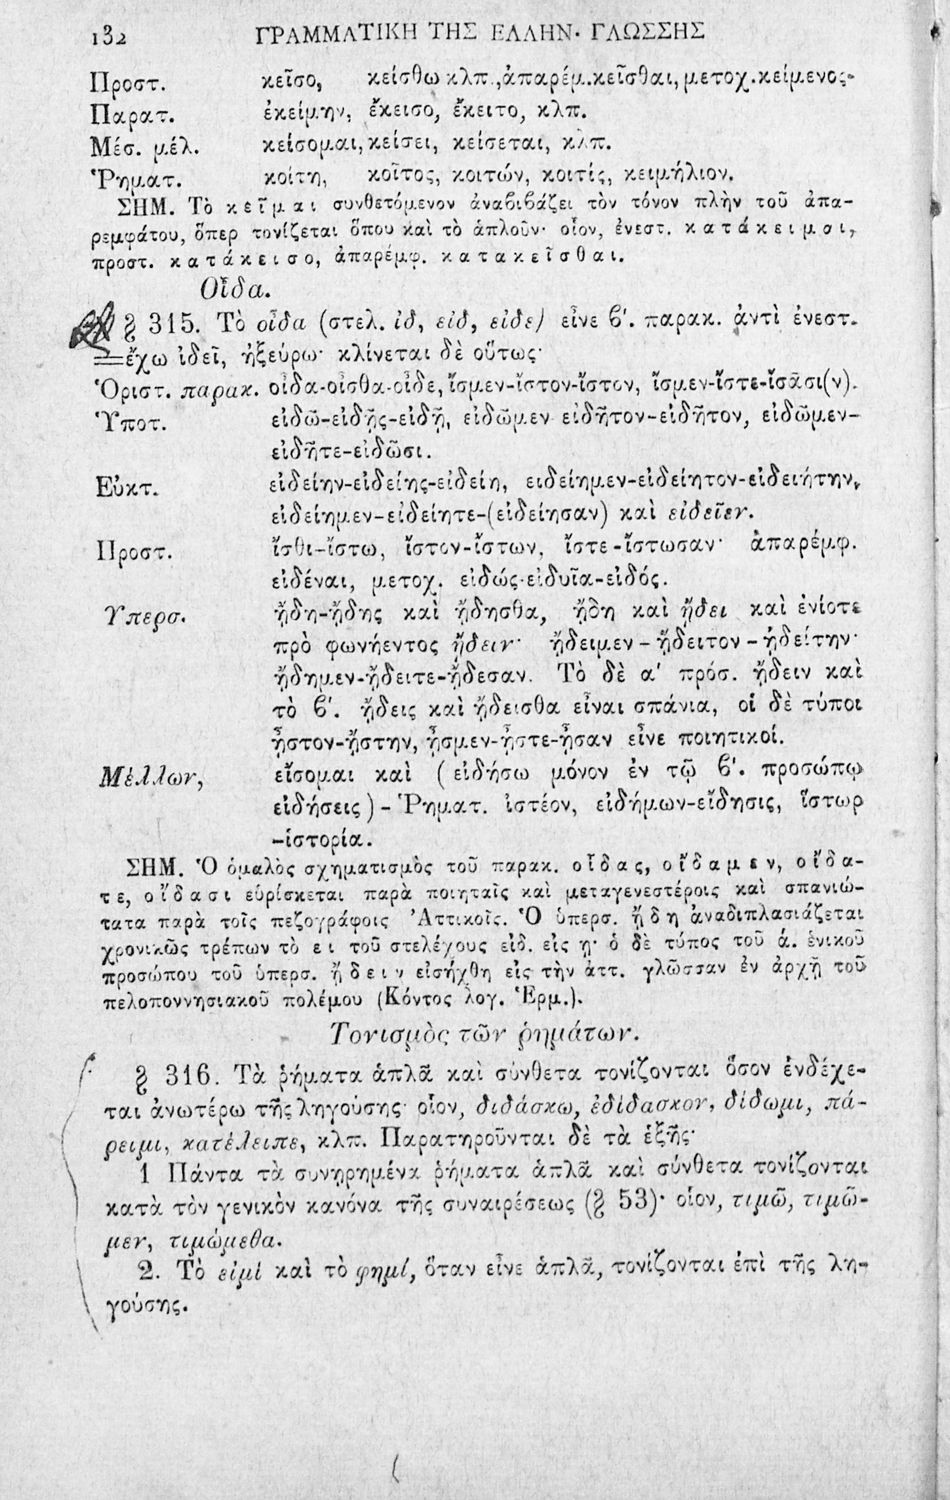 132 ΓΡΑΜΜΑΤΙΚΗ ΤΗΣ ΕΛΛΗΝ· ΓΛΩΣΣΗΣ
Προστ. κεῖσο, κείσθω κλπ., ἀπαρέμ. κεῖσθαι, μετοχ. κείμενος·
Παρατ. ἐκείμην, ἔκεισο, ἔκειτο, κλπ.
Μέσ. μέλ. κείσομαι, κείσει, κείσεται, κλπ.
Ῥηματ. κοίτη, κοῖτος, κοιτών, κοιτίς, κειμήλιον.
ΣΗΜ. Τὸ κεῖμαι συνθετόμενον ἀναβιβάζει τὸν τόνον πλὴν τοῦ ἀπα-
ρεμφάτου, ὅπερ τονίζεται ὅπου καὶ τὸ ἁπλοῦν· οἷον, ἐνεστ. κατάκειμαι,
προστ. κατάκεισο, ἀπαρέμφ. κατακεῖσθαι.
Οἶδα.
§ 315. Τὸ οἶδα (στελ. ἰδ, εἰδ, εἰδε) εἶνε β′. παρακ. ἀντὶ ἐνεστ.
=ἔχω ἰδεῖ, ἠξεύρω· κλίνεται δὲ οὕτως·
Ὁριστ. παρακ. οἶδα-οἶσθα-οἶδε, ἴσμεν-ἴστον-ἴστον, ἴσμεν-ἴστε-ἴσᾶσι(ν).
Ὑποτ. εἰδῶ-εἰδῇς-εἰδῇ, εἰδῶμεν εἰδῆτον-εἰδῆτον, εἰδῶμεν-
εἰδῆτε-εἰδῶσι.
Εὐκτ. εἰδείην-εἰδείης-εἰδείη, ειδείημεν-εἰδείητον-εἰδειήτην,
εἰδείημεν-εἰδείητε-(εἰδείησαν) καὶ εἰδεῖεν.
Προστ. ἴσθι-ἴστω, ἴστον-ἴστων, ἴστε-ἴστωσαν· ἀπαρέμφ.
εἰδέναι, μετοχ. εἰδώς-εἰδυῖα-εἰδός.
Ὑπερσ. ᾔδη-ᾔδης καὶ ᾔδησθα, ᾔδη καὶ ᾔδει καὶ ἐνίοτε
πρὸ φωνήεντος ᾔδειν· ᾔδειμεν-ᾔδειτον-ᾐδείτην·
ᾔδημεν-ᾔδειτε-ᾔδεσαν. Τὸ δὲ α′ πρόσ. ᾔδειν καὶ
τὸ β′. ᾔδεις καὶ ᾔδεισθα εἶναι σπάνια, οἱ δὲ τύποι
ᾖστον-ᾔστην, ᾖσμεν-ᾖστε-ᾖσαν εἶνε ποιητικοί.
Μέλλων, εἴσομαι καὶ (εἰδήσω μόνον ἐν τῷ β′. προσώπῳ
εἰδήσεις)-Ῥηματ. ἰστέον, εἰδήμων-εἴδησις, ἵστωρ
-ἱστορία.
ΣΗΜ. Ὁ ὁμαλὸς σχηματισμὸς τοῦ παρακ. οἶδας, οἴδαμεν, οἴδα-
τε, οἴδασι εὑρίσκεται παρὰ ποιηταῖς καὶ μεταγενεστέροις καὶ σπανιώ-
τατα παρὰ τοῖς πεζογράφοις Ἀττικοῖς. Ὁ ὑπερσ. ᾔδη ἀναδιπλασιάζεται
χρονικῶς τρέπων τὸ ει τοῦ στελέχους εἰδ. εἰς ῃ· ὁ δὲ τύπος τοῦ ά. ἑνικοῦ
προσώπου τοῦ ὑπερσ. ᾔδειν εἰσήχθη εἰς τὴν ἀττ. γλῶσσαν ἐν ἀρχῇ τοῦ
πελοποννησιακοῦ πολέμου (Κόντος λογ. Ἑρμ.).
Τονισμὸς τῶν ῥημάτων.
§ 316. Τὰ ῥήματα ἁπλᾶ καὶ σύνθετα τονίζονται ὅσον ἐνδέχε-
ται ἀνωτέρω τῆς ληγούσης· οἷον, διδάσκω, ἐδίδασκον, δίδωμι, πά-
ρειμι, κατέλειπε, κλπ. Παρατηροῦνται δὲ τὰ ἑξῆς·
1 Πάντα τὰ συνῃρημένα ῥήματα ἁπλᾶ καὶ σύνθετα τονίζονται
κατὰ τὸν γενικὸν κανόνα τῆς συναιρέσεως (§ 53)· οἷον, τιμῶ, τιμῶ-
μεν, τιμώμεθα.
2. Τὸ εἰμί καὶ τὸ φημί, ὅταν εἶνε ἁπλᾶ, τονίζονται ἐπὶ τῆς λη-
γούσης.